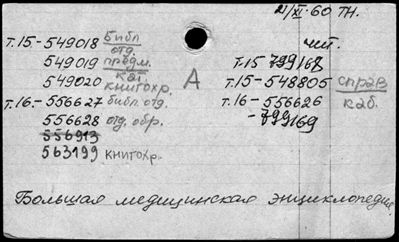 2/XI-60 тн.
т.15-549018 библ. отд.
549019 предм. кат.
549020 книгохр.
т.16-556627 библ. отд.
556628 отд. обр.
556913
563199 книгохр.
А
чит.
т.15 799168
т.15-548805 справ. каб.
т.16-556626
-799169
Большая медицинская энциклопедия.